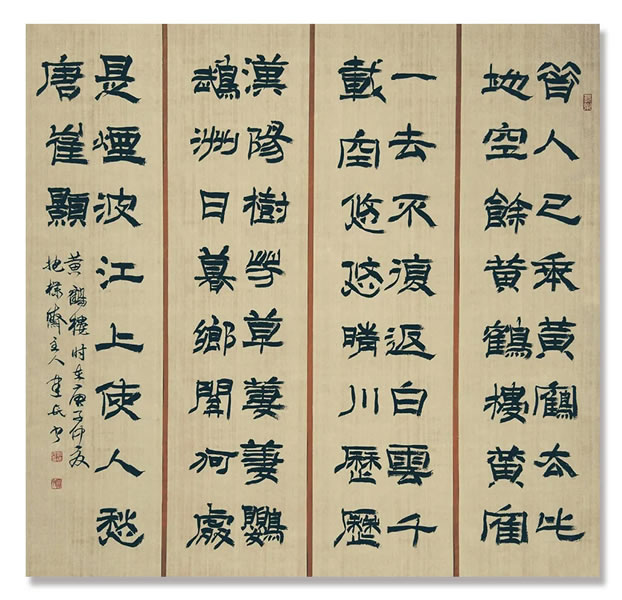 昔人已乘黃鶴去此
地空餘黃鶴樓黃鶴
一去不復返白雲千
載空悠悠晴川歷歷
漢陽樹芳草萋萋鸚
鵡洲日暮鄉關何處
是煙波江上使人愁
唐崔顥
黃鶴樓时在庚子仲夏
抱樸齋主人